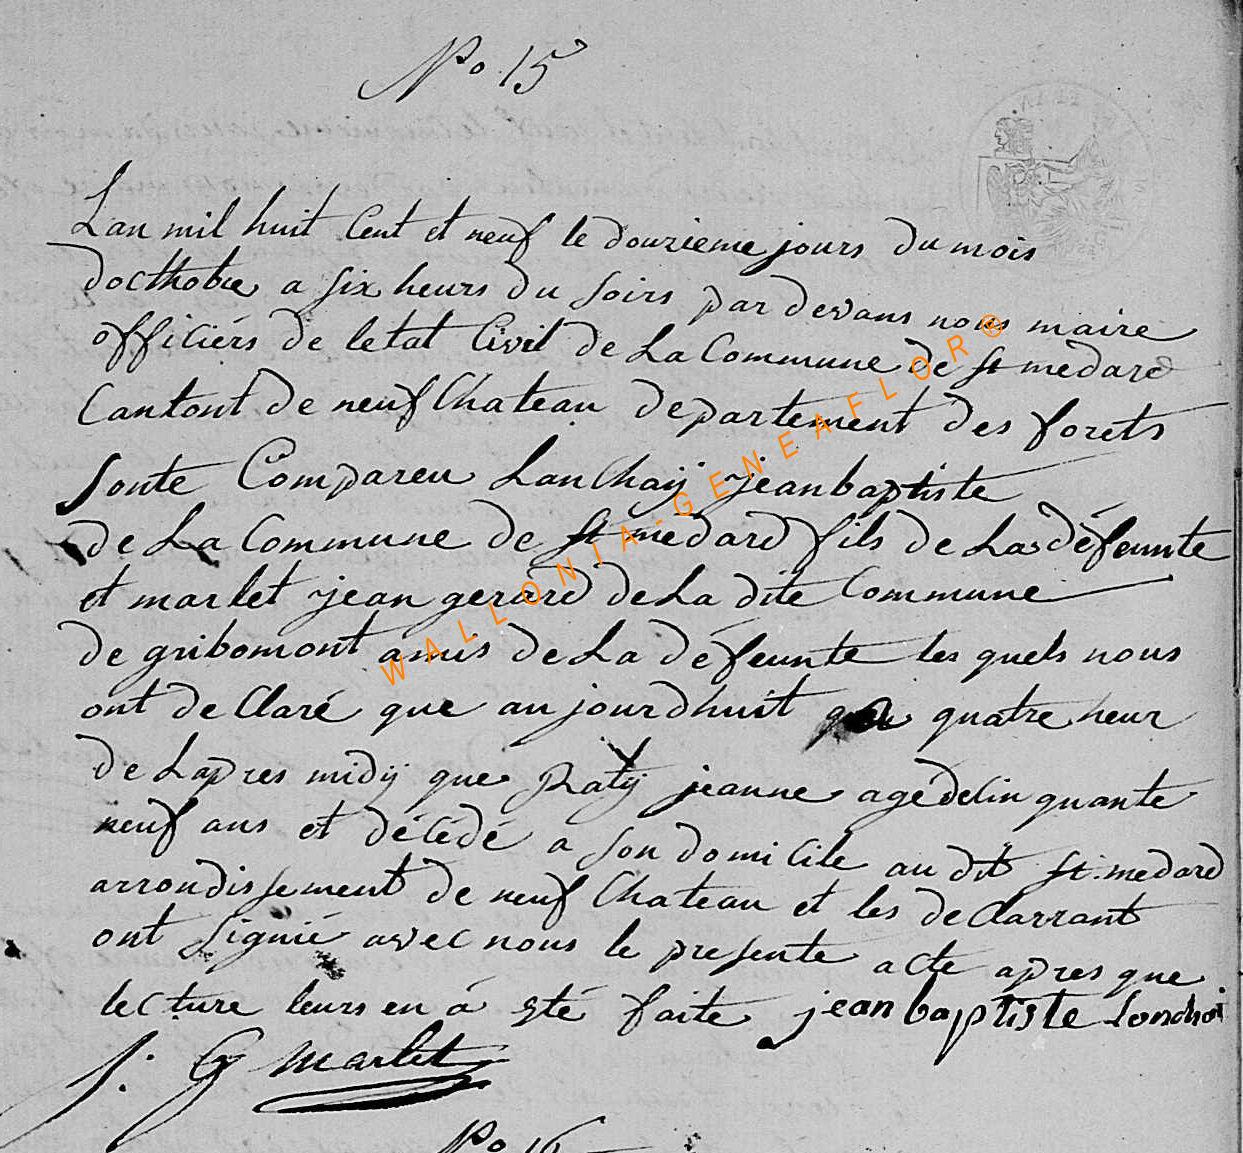 No 15
Lan mil huit Cent et neuf le douzieme jours du mois
docthobre a six heurs du soirs par devans nous maire
officiérs de letat Civil de La Commune de St medard
Cantont de neufChateau departement des forets
sonte Compareu LanChaij jeanbaptiste
de La Commune de St medard fils de La défeunte
et marlet jean gerard de La dite Commune
de gribomont amis de La défeunte les quels nous
ont deClaré que aujourdhuit quatre heur
de Lapres midij que Ratij jeanne agé de Cinquante
neuf ans et décédé a son domicile au dit St. medard
arrondissement de neufChateau et les deClarrant
ont signié avec nous le presente acte apres que
lecture leurs en á eté faite jean baptiste Lonchai
J: G marlet
No 16
WALLONIA-GENEAFLOR®